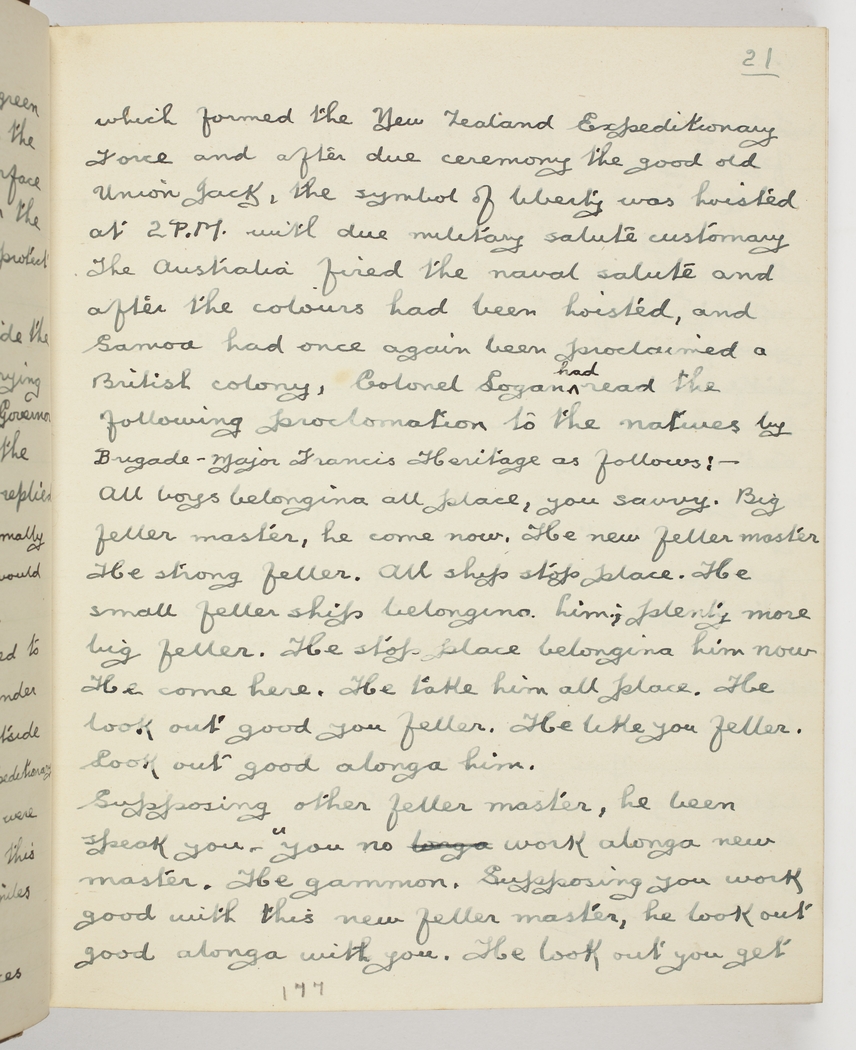 21
which formed the New Zealand Expeditionary
Force and after due ceremony the good old
Union Jack, the symbol of liberty was hoisted
at 2 P.M. with due military salute customary
The Australia fired the naval salute and
after the colours had been hoisted, and
Samoa had once again been proclaimed a
British colony, Colonel Logan had read the
following proclomation to the natives by
Brigade-Major Francis Heritage as follows:—
All boys belongina all place, you savvy. Big
feller master, he come now. He new feller master
He strong feller. All ship stop place. He
small feller ship belongina him; plenty more
big feller. He stop place belongina him now
He come here. He take him all place. He
look out good you feller. He like you feller.
Look out good alonga him.
Supposing other feller master, he been
speak you - "you no longa work alonga new
master. He gammon. Supposing you work
good with this new feller master, he look out
good alonga with you. He look out you get
177
green
the
rface
the
protect
ide the
rying
Governor
the
replied
mally
would
ed to
nder
tside
peditionary
were
this
miles
es